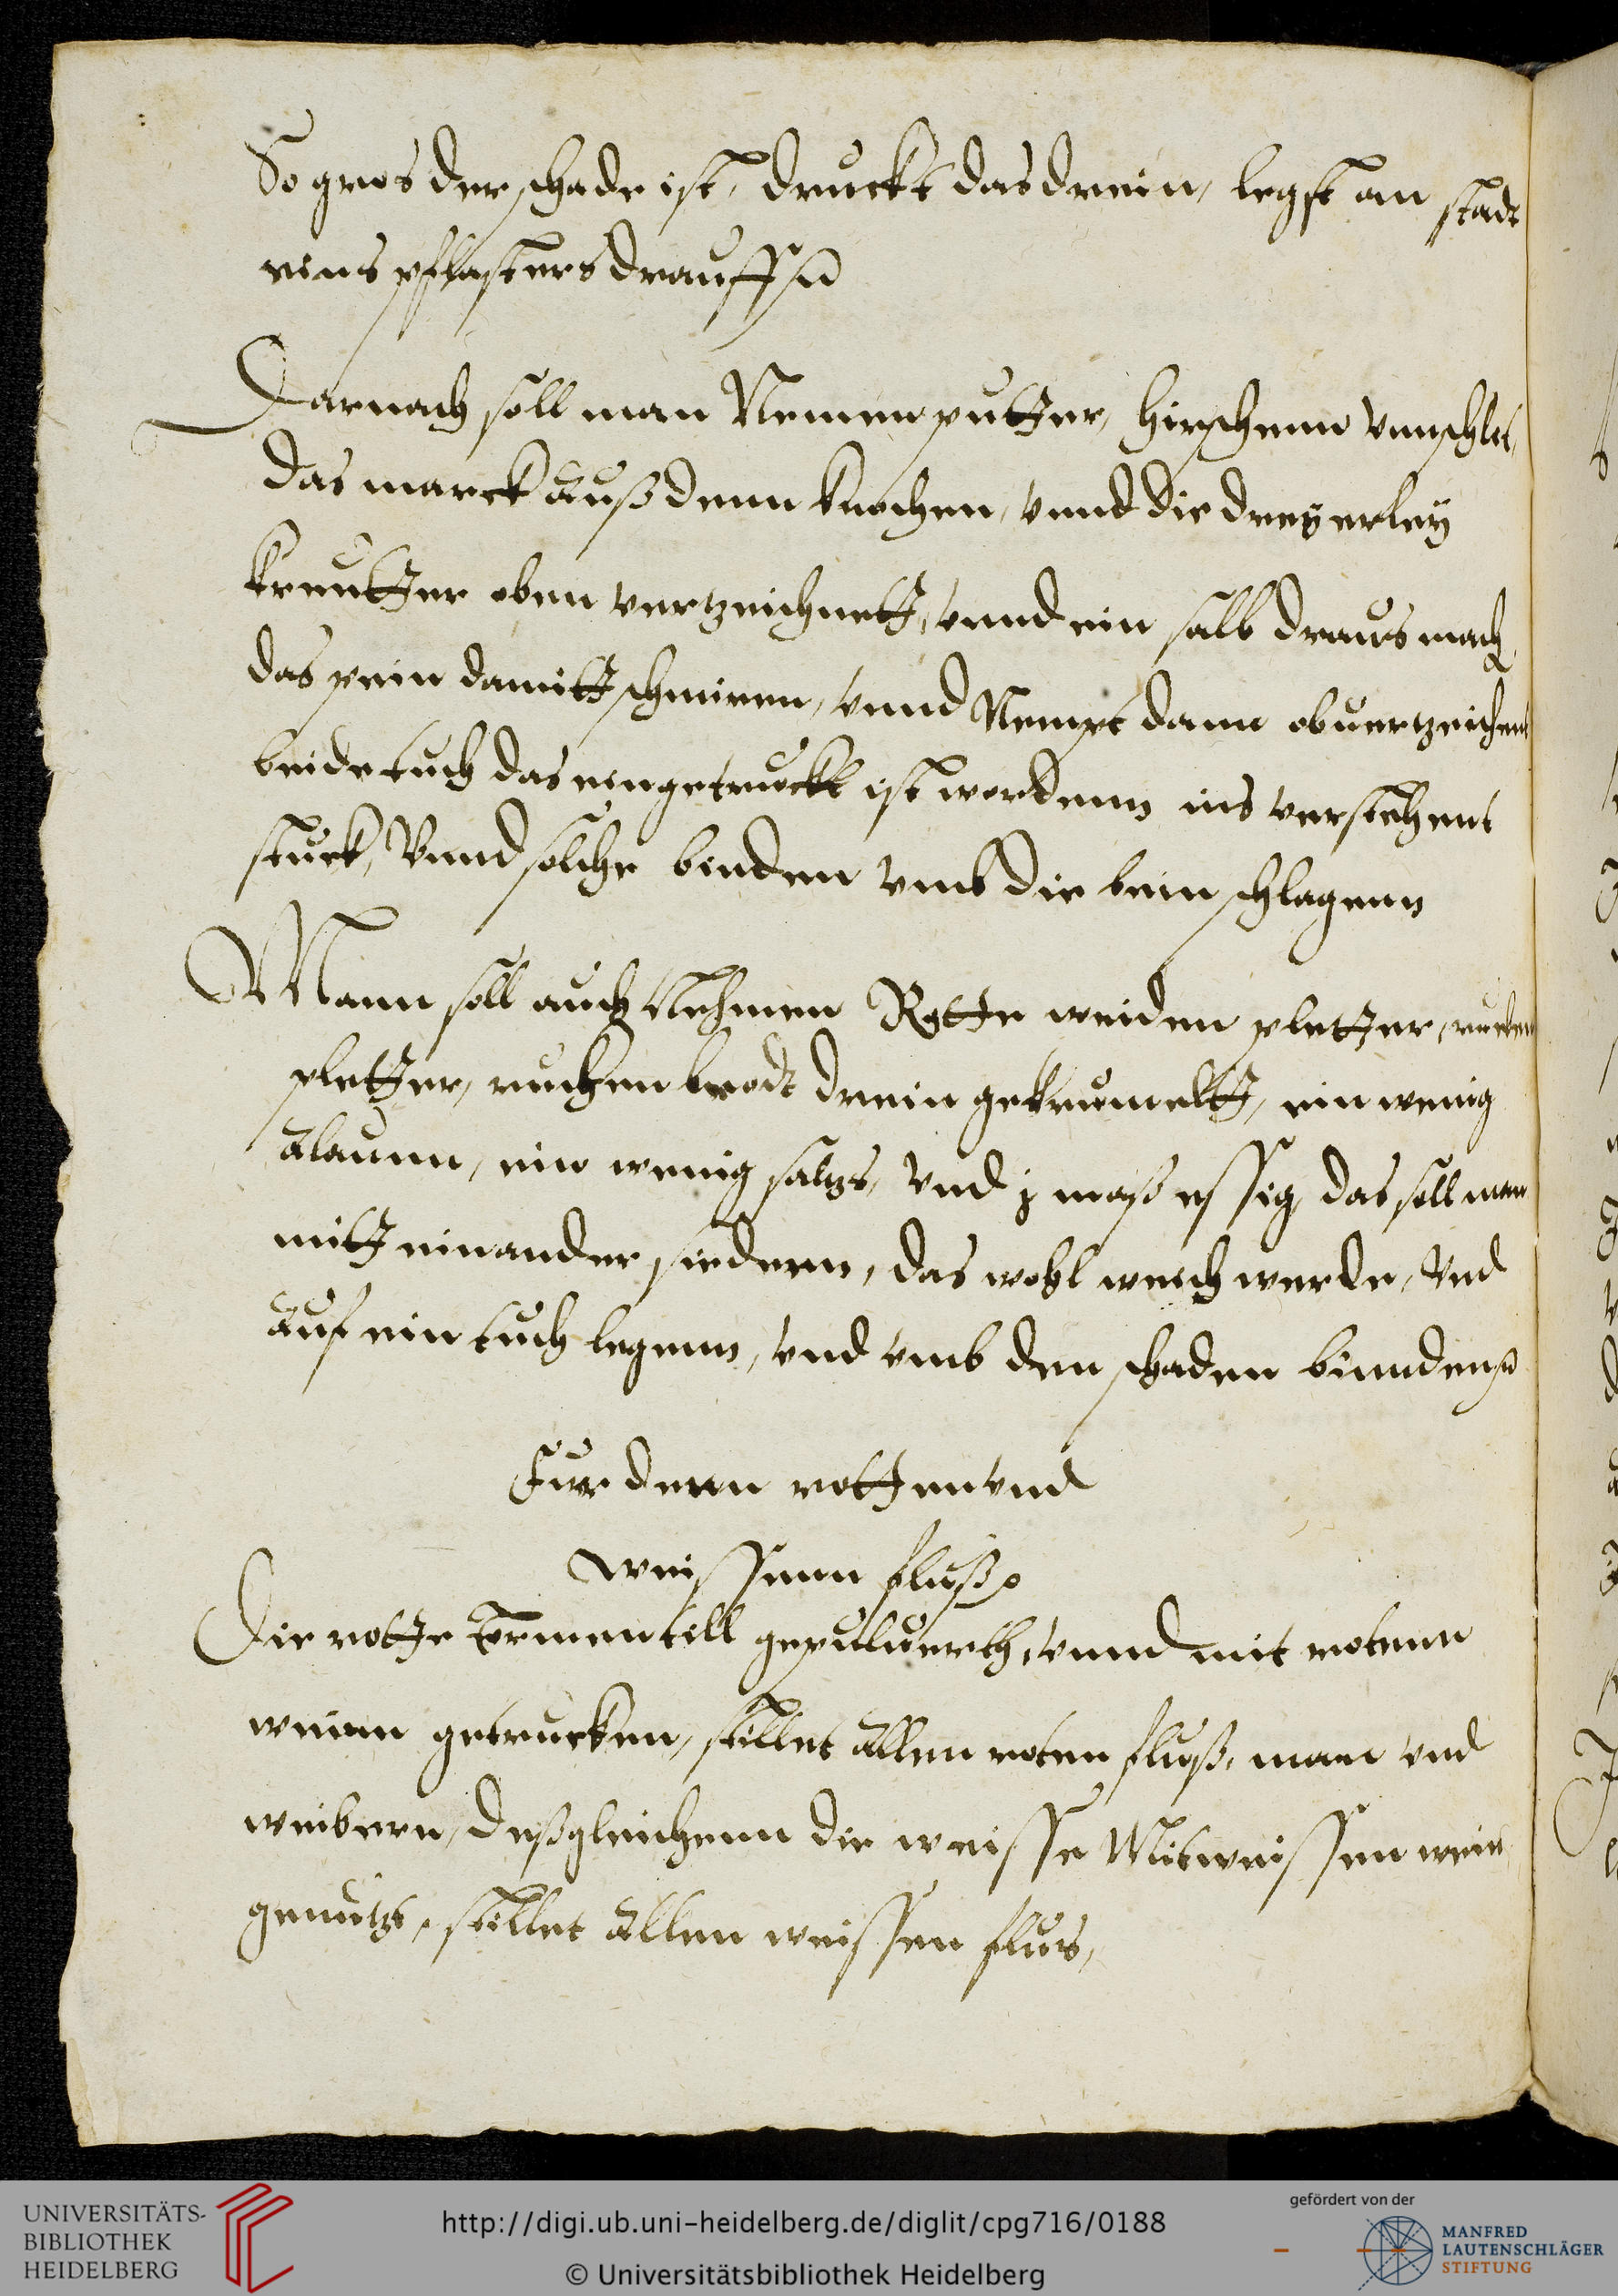 So gros der schade ist, druckt das drein, legst an stadt
eins pflasters drauff
Darnach soll man Nemen putter, hirschenn vnnschlet,
das marck auß denn knochen, vnnd die dreyerley
kreutter oben vertzeichnett, vnnd ein salb draus mach,
das pein damitt schmiren, vnnd Nempt dann obuertzeichent
beide tuch das eingetruckt ist wordenn ins verstehent
stuck, Vnnd solche binden vmb die bein schlagenn
Mann soll auch Nehmen Rotte weiden pletter,
pletter, ruckenbrodt drein gekrumelt, ein wenig
alaunn, ein wenig saltzs, Vnd j maß essig, das soll man
mitt einander siedenn, das wohl weich werde, Vnd
auf ein tuch legenn, vnd vmb den schaden binnden
Fur denn rotten vnd
weissenn fluß
Die rotte tormentill gepuluerth, vnnd mit rotenn
weinn getrucken, stillet allen roten fluß, man vnd
weibern, Deßgleichenn die weisse Mit weissen wein
genutzt, stillet allen weissen flus,
UNIVERSITÄTS-
BIBLIOTHEK
HEIDELBERG
http://digi.ub.uni-heidelberg.de/diglit/cpg716/0188
© Universitätsbibliothek Heidelberg
gefördert von der
MANFRED
LAUTENSCHLÄGER
STIFTUNG